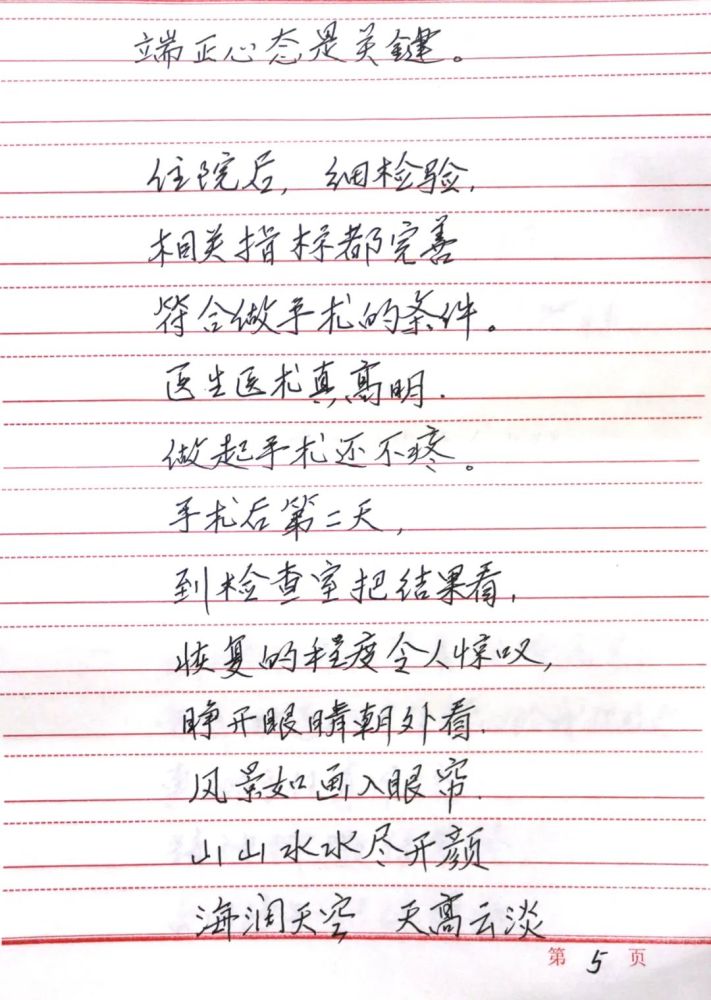 端正心态是关键。
住院后，细检验，
相关指标都完善
符合做手术的条件。
医生医术真高明.
做起手术还不疼。
手术后第二天，
到检查室把结果看，
恢复的程度令人惊叹，
睁开眼睛朝外看.
风景如画入眼帘.
山山水水尽开颜
海润天空 天高云淡
第5页